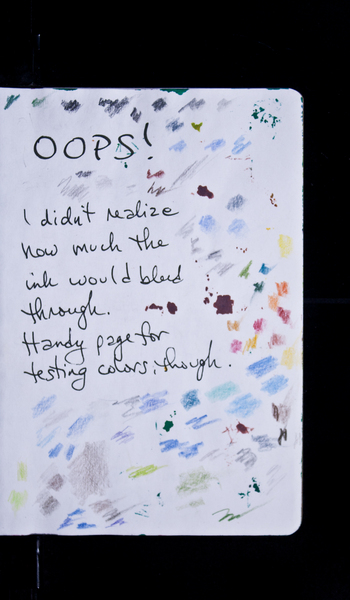 OOPS!
I didn't realize
how much the
ink would bleed
through.
Handy page for
testing colors, though.